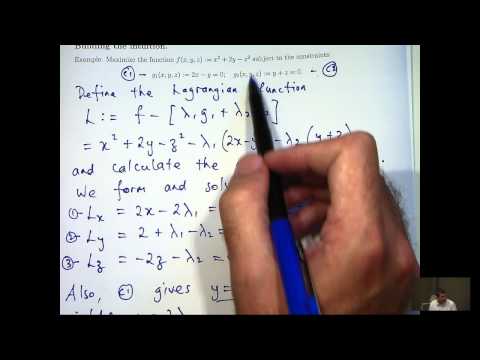 Building the intuition.
Example: Maximize the function f(x, y, z) := x² + 2y − z² subject to the constraints
C1 → g₁(x, y, z) := 2x − y = 0; g₂(x, y, z) := y + z = 0. − C2
Define the Lagrangian function
L := f − [λ₁ g₁ + λ₂ ]
= x² + 2y − z² − λ₁ (2x − y) − λ₂ (y + z)
and calculate the
We form and
① − Lx = 2x − 2λ₁ =
② − Ly = 2 + λ₁ − λ₂ =
③ − Lz = −2z − λ₂ =
Also, C1 gives y =